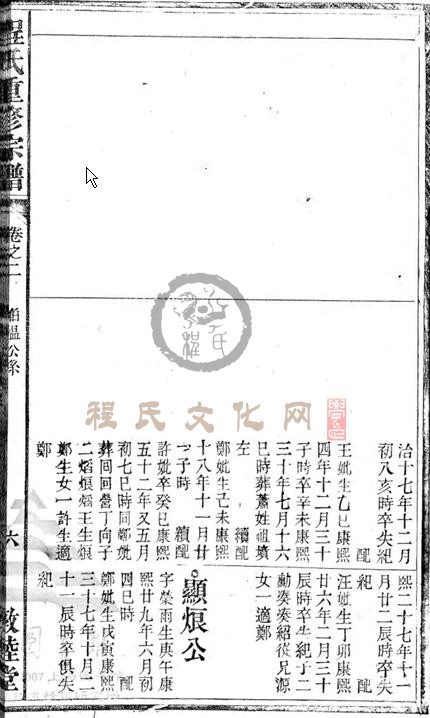 治十七年十二月
初八亥時卒失紀
配
王妣生乙巳康熙
四年十二月三十
子時卒辛未康熙
三十年七月十六
巳時葬蕭姓祖墳
左 續配
鄭妣生己未康熙
十八年十一月廿
一子時 續配
許妣卒癸巳康熙
五十二年又五月
初七巳時同鄭妣
葬回回營丁向子
二熖烺熖王生烺
鄭生女一許生適
鄭
熙二十七年十一
月廿二辰時卒失
紀 配
汪妣生丁卯康熙
廿六年二月三十
辰時卒失紀子二
勳奏奏紹從兄源
女一適鄭
顯烺公
字榮雨生庚午康
熙廿九年六月初
四巳時 配
鄭妣生戊寅康熙
三十七年十月二
十一辰時卒俱失
紀
程氏重修宗譜
卷之二
公系
六
敦睦堂
程氏文化网